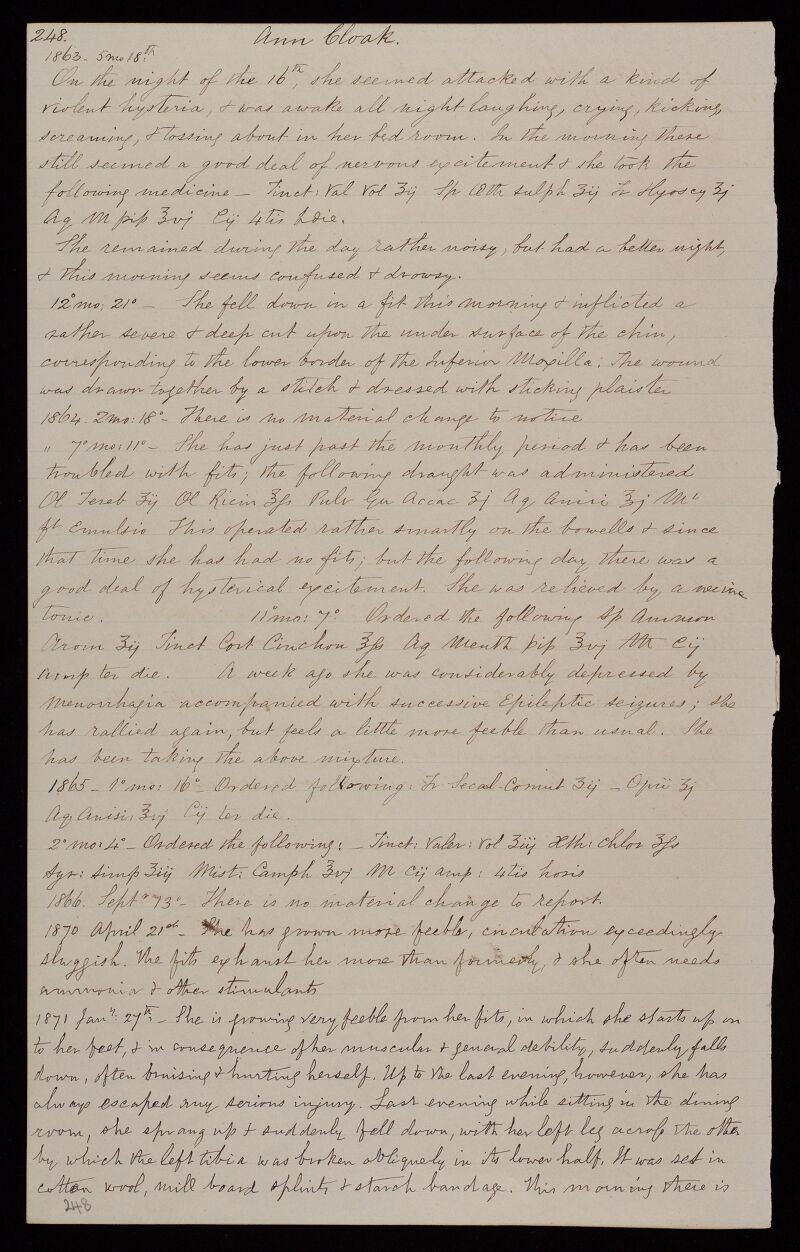 248. Ann Cloak.
1863 - 5mo 18th
On the night of the 16th, she seemed attacked with a kind of
violent hysteria, & was awake all night laughing, crying, kicking,
screaming, & tossing about in her bed room. In the morning there
still seemed a good deal of nervous excitement & she took the
following medicine - Tinct: Val Vol ʒij Sp Æth sulph ʒij Tr Hyoscy ʒj
Aq M pip ℥vj Cij 4tis h die.
She remained during the day rather noisy, but had a better night,
& this morning seems confused & drowsy.
12° mo: 21° - She fell down in a fit this morning & inflicted a
rather severe & deep cut upon the under surface of the chin,
corresponding to the lower border of the Inferior Maxilla. The wound
was drawn together by a stitch & dressed with sticking plaister
1864. 2mo: 18° - There is no material change to notice
" 7° mo: 11° - She has just past the monthly period & has been
troubled with fits; the following draught was administered
Ol Tereb ʒij Ol Ricin ℥fs Pulv Gu Accac ʒj Aq Anisi ℥j M
ft Emulsio This operated rather smartly on the bowells & since
that time she has had no fits; but the following day there was a
good deal of hysterical excitement. She was relieved by a nervine
tonic. 11° mo: 7° Ordered the following Sp Ammon
Arom ʒij Tinct Cort Cinchon ℥fs Aq Menth pip ℥vj Cij
amp ter die. A week ago she was considerably depressed by
Menorrhagia accompanied with successive Epileptic seizures; she
has rallied again, but feels a little more feeble than usual. She
has been taking the above mixture.
1865 - 1° mo: 16° - Ordered following: Tr Secal-Cornut ʒij - Opii ʒj
Aq Anisi: ℥vj Cij ter die.
2° mo: 4° - Ordered the following: - Tinct: Valer: Vol ʒiij Æth: Chlor ℥fs
Syr: Simp ʒiij Mist: Camph ℥vj M Cij amp: 4tis horis
1866. Septr 13° - There is no material change to report.
1870 April 21st - She has grown more feeble, circulation exceedingly
sluggish. The fits exhaust her more than formerly, & she often needs
ammonia & other stimulants
1871 Jany: 27th - She is growing very feeble from her fits, in which she starts up on
to her feet, & in consequence of her muscular & general debility, suddenly falls
down, often bruising & hurting herself. Up to the last evening, however, she has
always escaped any serious injury. Last evening while sitting in the dining
room, she sprang up & suddenly fell down, with her left leg across the other
by which the left tibia was broken obliquely in its lower half. It was set in
cotton wool, mill board splints & starch bandage. This morning there is
248